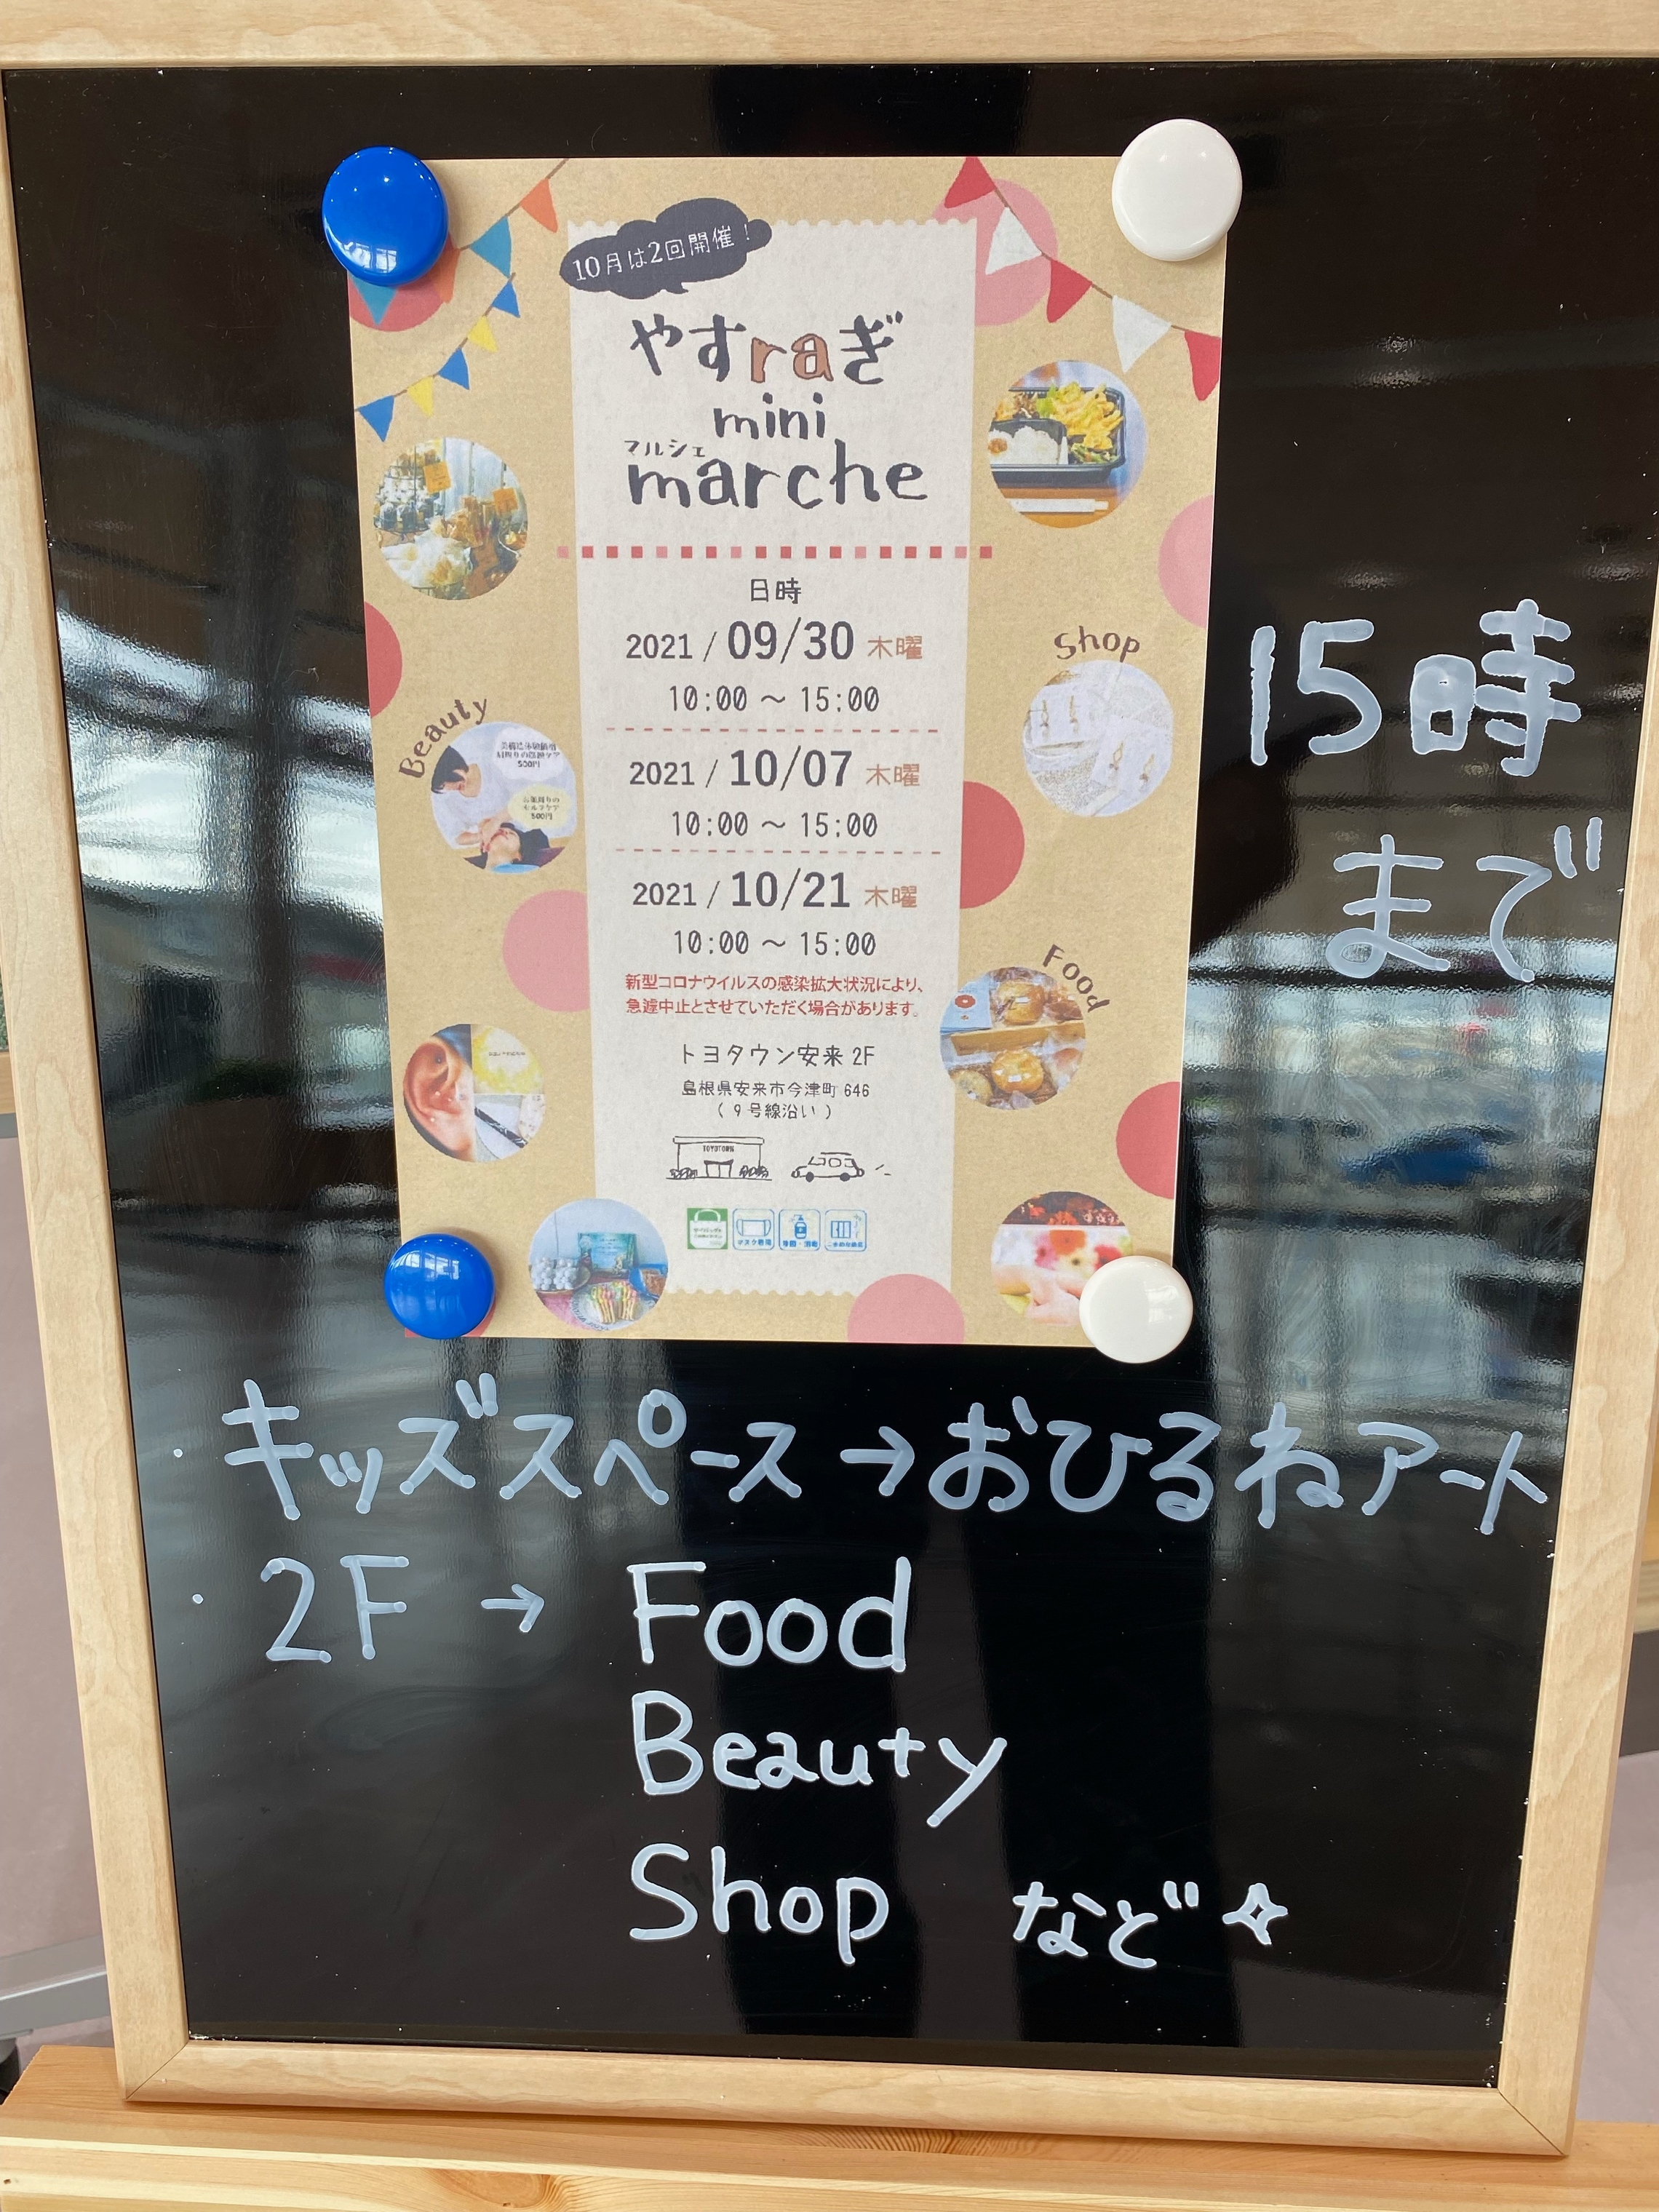 10月は2回開催！
やすraぎ
mini
マルシェ
marche
日時
2021 / 09/30 木曜
10:00 ～ 15:00
Shop
15時
まで
Beauty
500円
500円
2021 / 10/07 木曜
10:00 ～ 15:00
2021 / 10/21 木曜
10:00 ～ 15:00
Food
新型コロナウイルスの感染拡大状況により、
急遽中止とさせていただく場合があります。
トヨタウン安来 2F
島根県安来市今津町 646
（９号線沿い）
TOYOTOWN
マスク着用
・キッズスペース→おひるねアート
・2F → Food
Beauty
Shop など